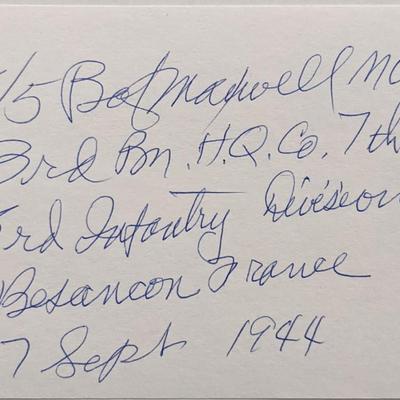 T/5 Bob Maxwell MO
3rd Bn. H.Q. Co. 7th
3rd Infantry Division
Besancon France
7 Sept 1944